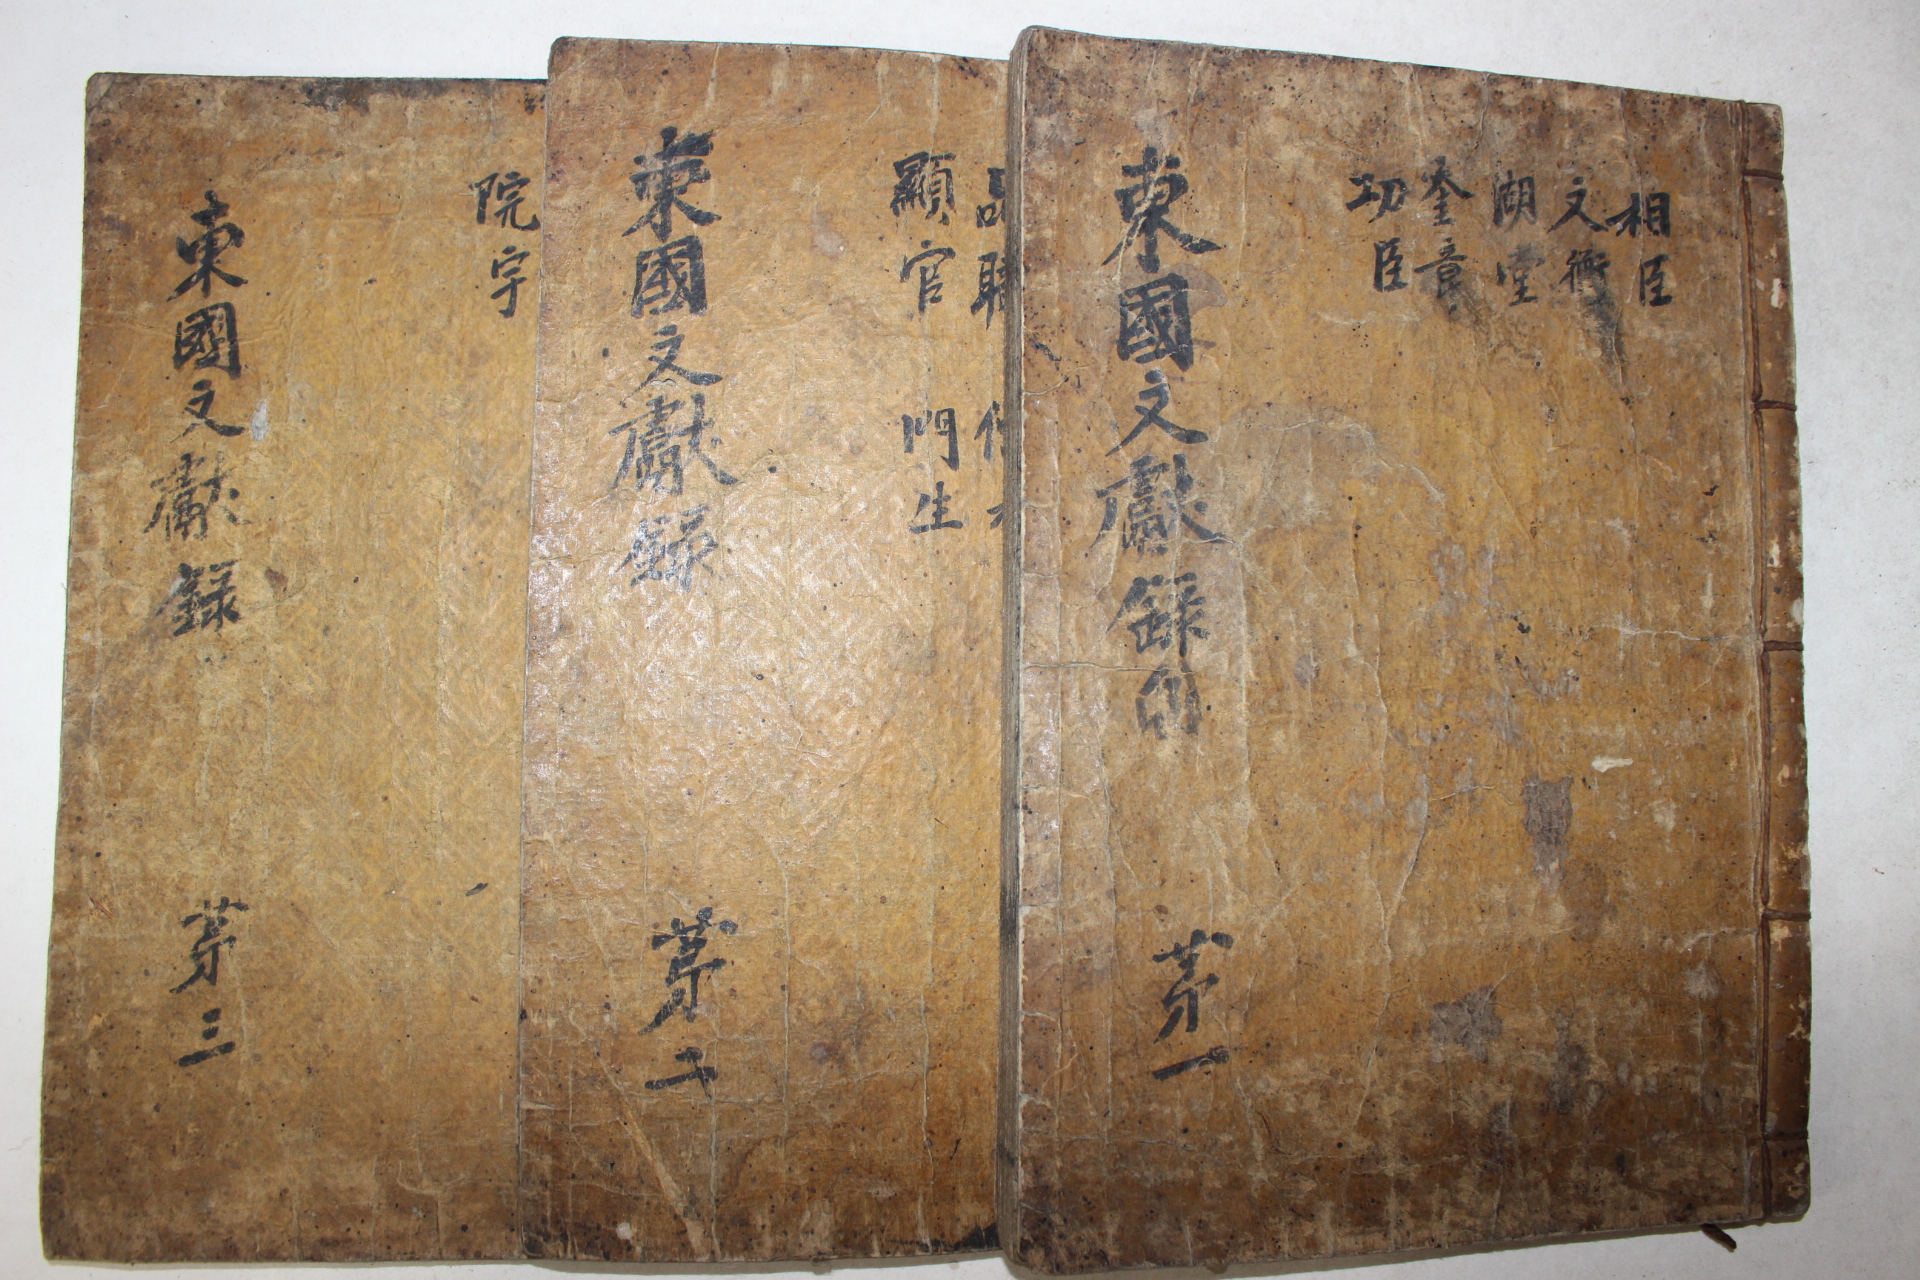 相臣
文衡
湖堂
奎章
功臣
東國文献錄
茅一
顯官 門生
東國文献錄
茅二
院宇
東國文献錄
茅三